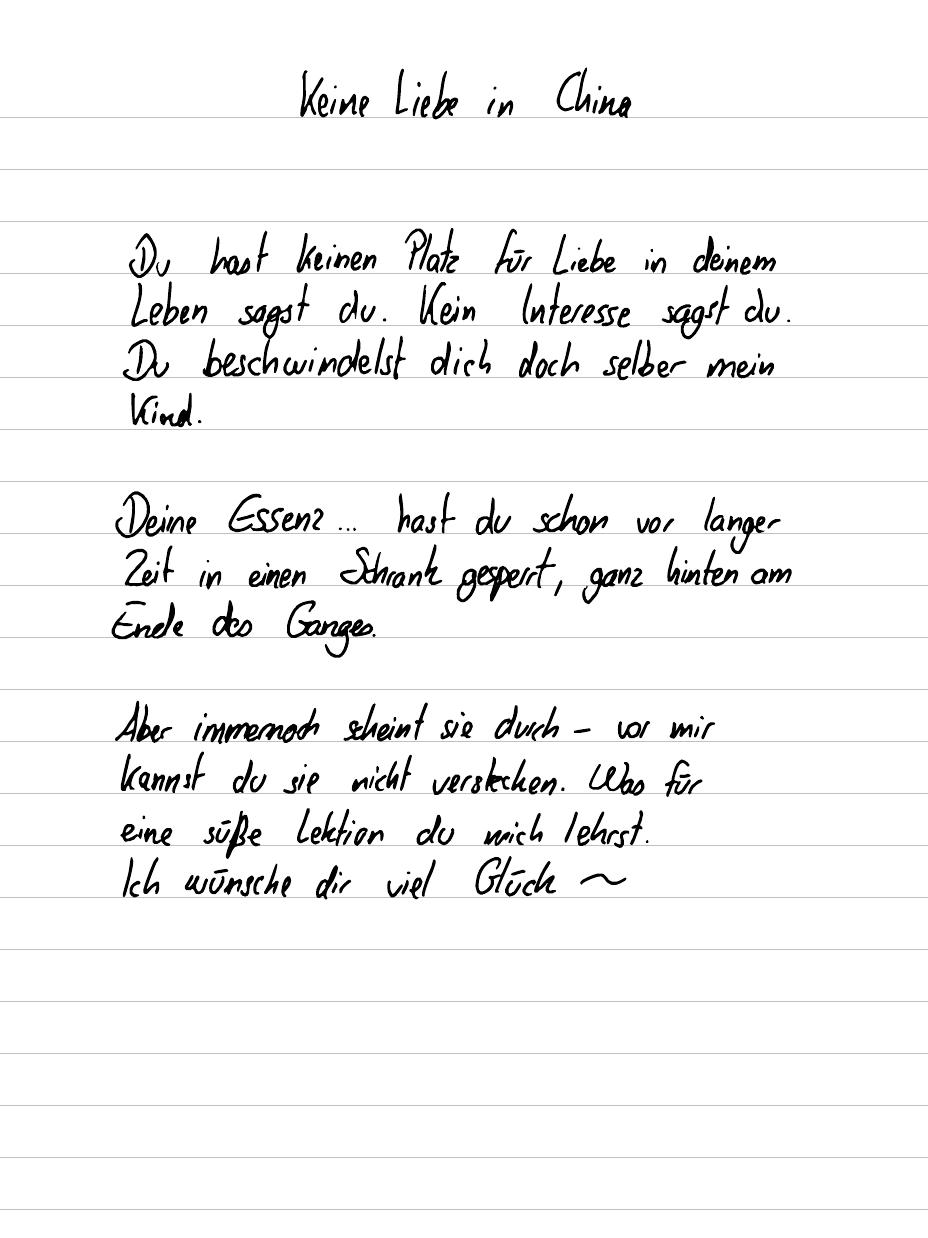 Keine Liebe in China
Du hast keinen Platz für Liebe in deinem
Leben sagst du. Kein Interesse sagst du.
Du beschwindelst dich doch selber mein
Kind.
Deine Essenz... hast du schon vor langer
Zeit in einen Schrank gesperrt, ganz hinten am
Ende des Ganges.
Aber immernoch scheint sie durch – vor mir
kannst du sie nicht verstecken. Was für
eine süße Lektion du mich lehrst.
Ich wünsche dir viel Glück ~